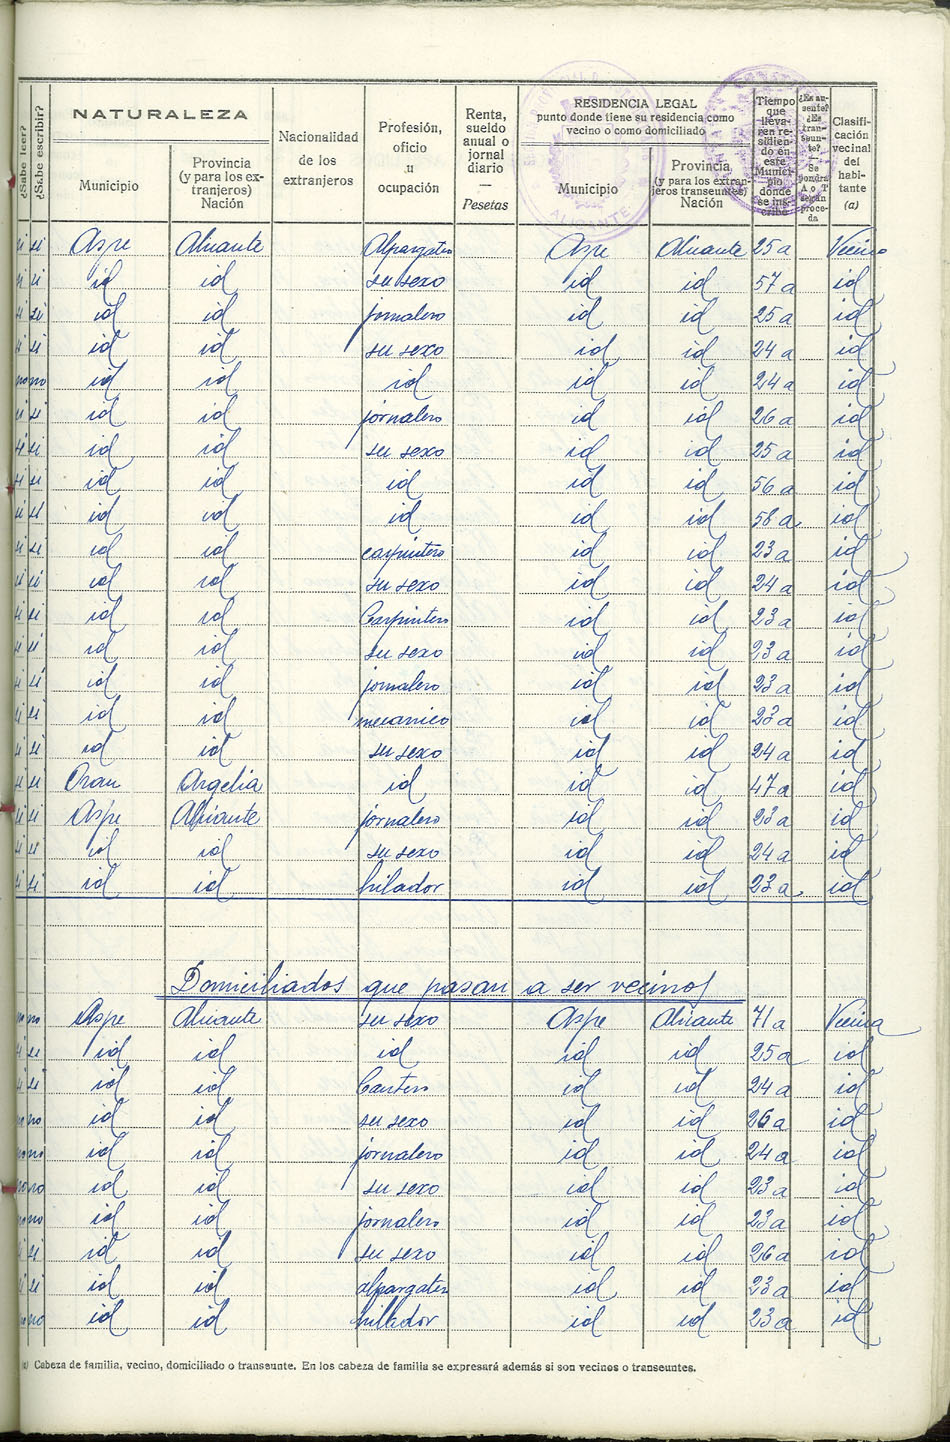 ¿Sabe leer?
¿Sabe escribir?
NATURALEZA
Municipio
Provincia
(y para los ex-
tranjeros)
Nación
Nacionalidad
de los
extranjeros
Profesión,
oficio
u
ocupación
Renta,
sueldo
anual o
jornal
diario
—
Pesetas
RESIDENCIA LEGAL
punto donde tiene su residencia como
vecino o como domiciliado
Municipio
Provincia
(y para los extran-
jeros transeuntes)
Nación
Tiempo
que
lleva-
ren re-
sidien-
do en
este
Munici-
pio
donde
se ins-
cribe
¿Es au-
sente?
¿Es
tran-
seun-
te?
—
Se
pondrá
A o T
según
proce-
da
Clasifi-
cación
vecinal
del
habi-
tante
(a)
ALICANTE
si si Aspe Alicante Alpargatero Aspe Alicante 25 a Vecino
si si id id su sexo id id 57 a id
si si id id jornalero id id 25 a id
si si id id su sexo id id 24 a id
no no id id id id id 24 a id
si si id id jornalero id id 26 a id
si si id id su sexo id id 25 a id
si si id id id id id 56 a id
si si id id id id id 58 a id
si si id id carpintero id id 23 a id
si si id id su sexo id id 24 a id
si si id id Carpintero id id 23 a id
si si id id su sexo id id 23 a id
si si id id jornalero id id 23 a id
si si id id mecanico id id 23 a id
si si id id su sexo id id 24 a id
si si Oran Argelia id id id 47 a id
si si Aspe Alicante jornalero id id 23 a id
si si id id su sexo id id 24 a id
si si id id hilador id id 23 a id
Domiciliados que pasan a ser vecinos
no no Aspe Alicante su sexo Aspe Alicante 71 a Vecina
si si id id id id id 25 a id
si si id id Cantero id id 24 a id
no no id id su sexo id id 26 a id
no no id id jornalero id id 24 a id
no no id id su sexo id id 23 a id
no no id id jornalero id id 23 a id
si si id id su sexo id id 26 a id
si si id id alpargatero id id 23 a id
no no id id hilador id id 23 a id
(a) Cabeza de familia, vecino, domiciliado o transeunte. En los cabeza de familia se expresará además si son vecinos o transeuntes.